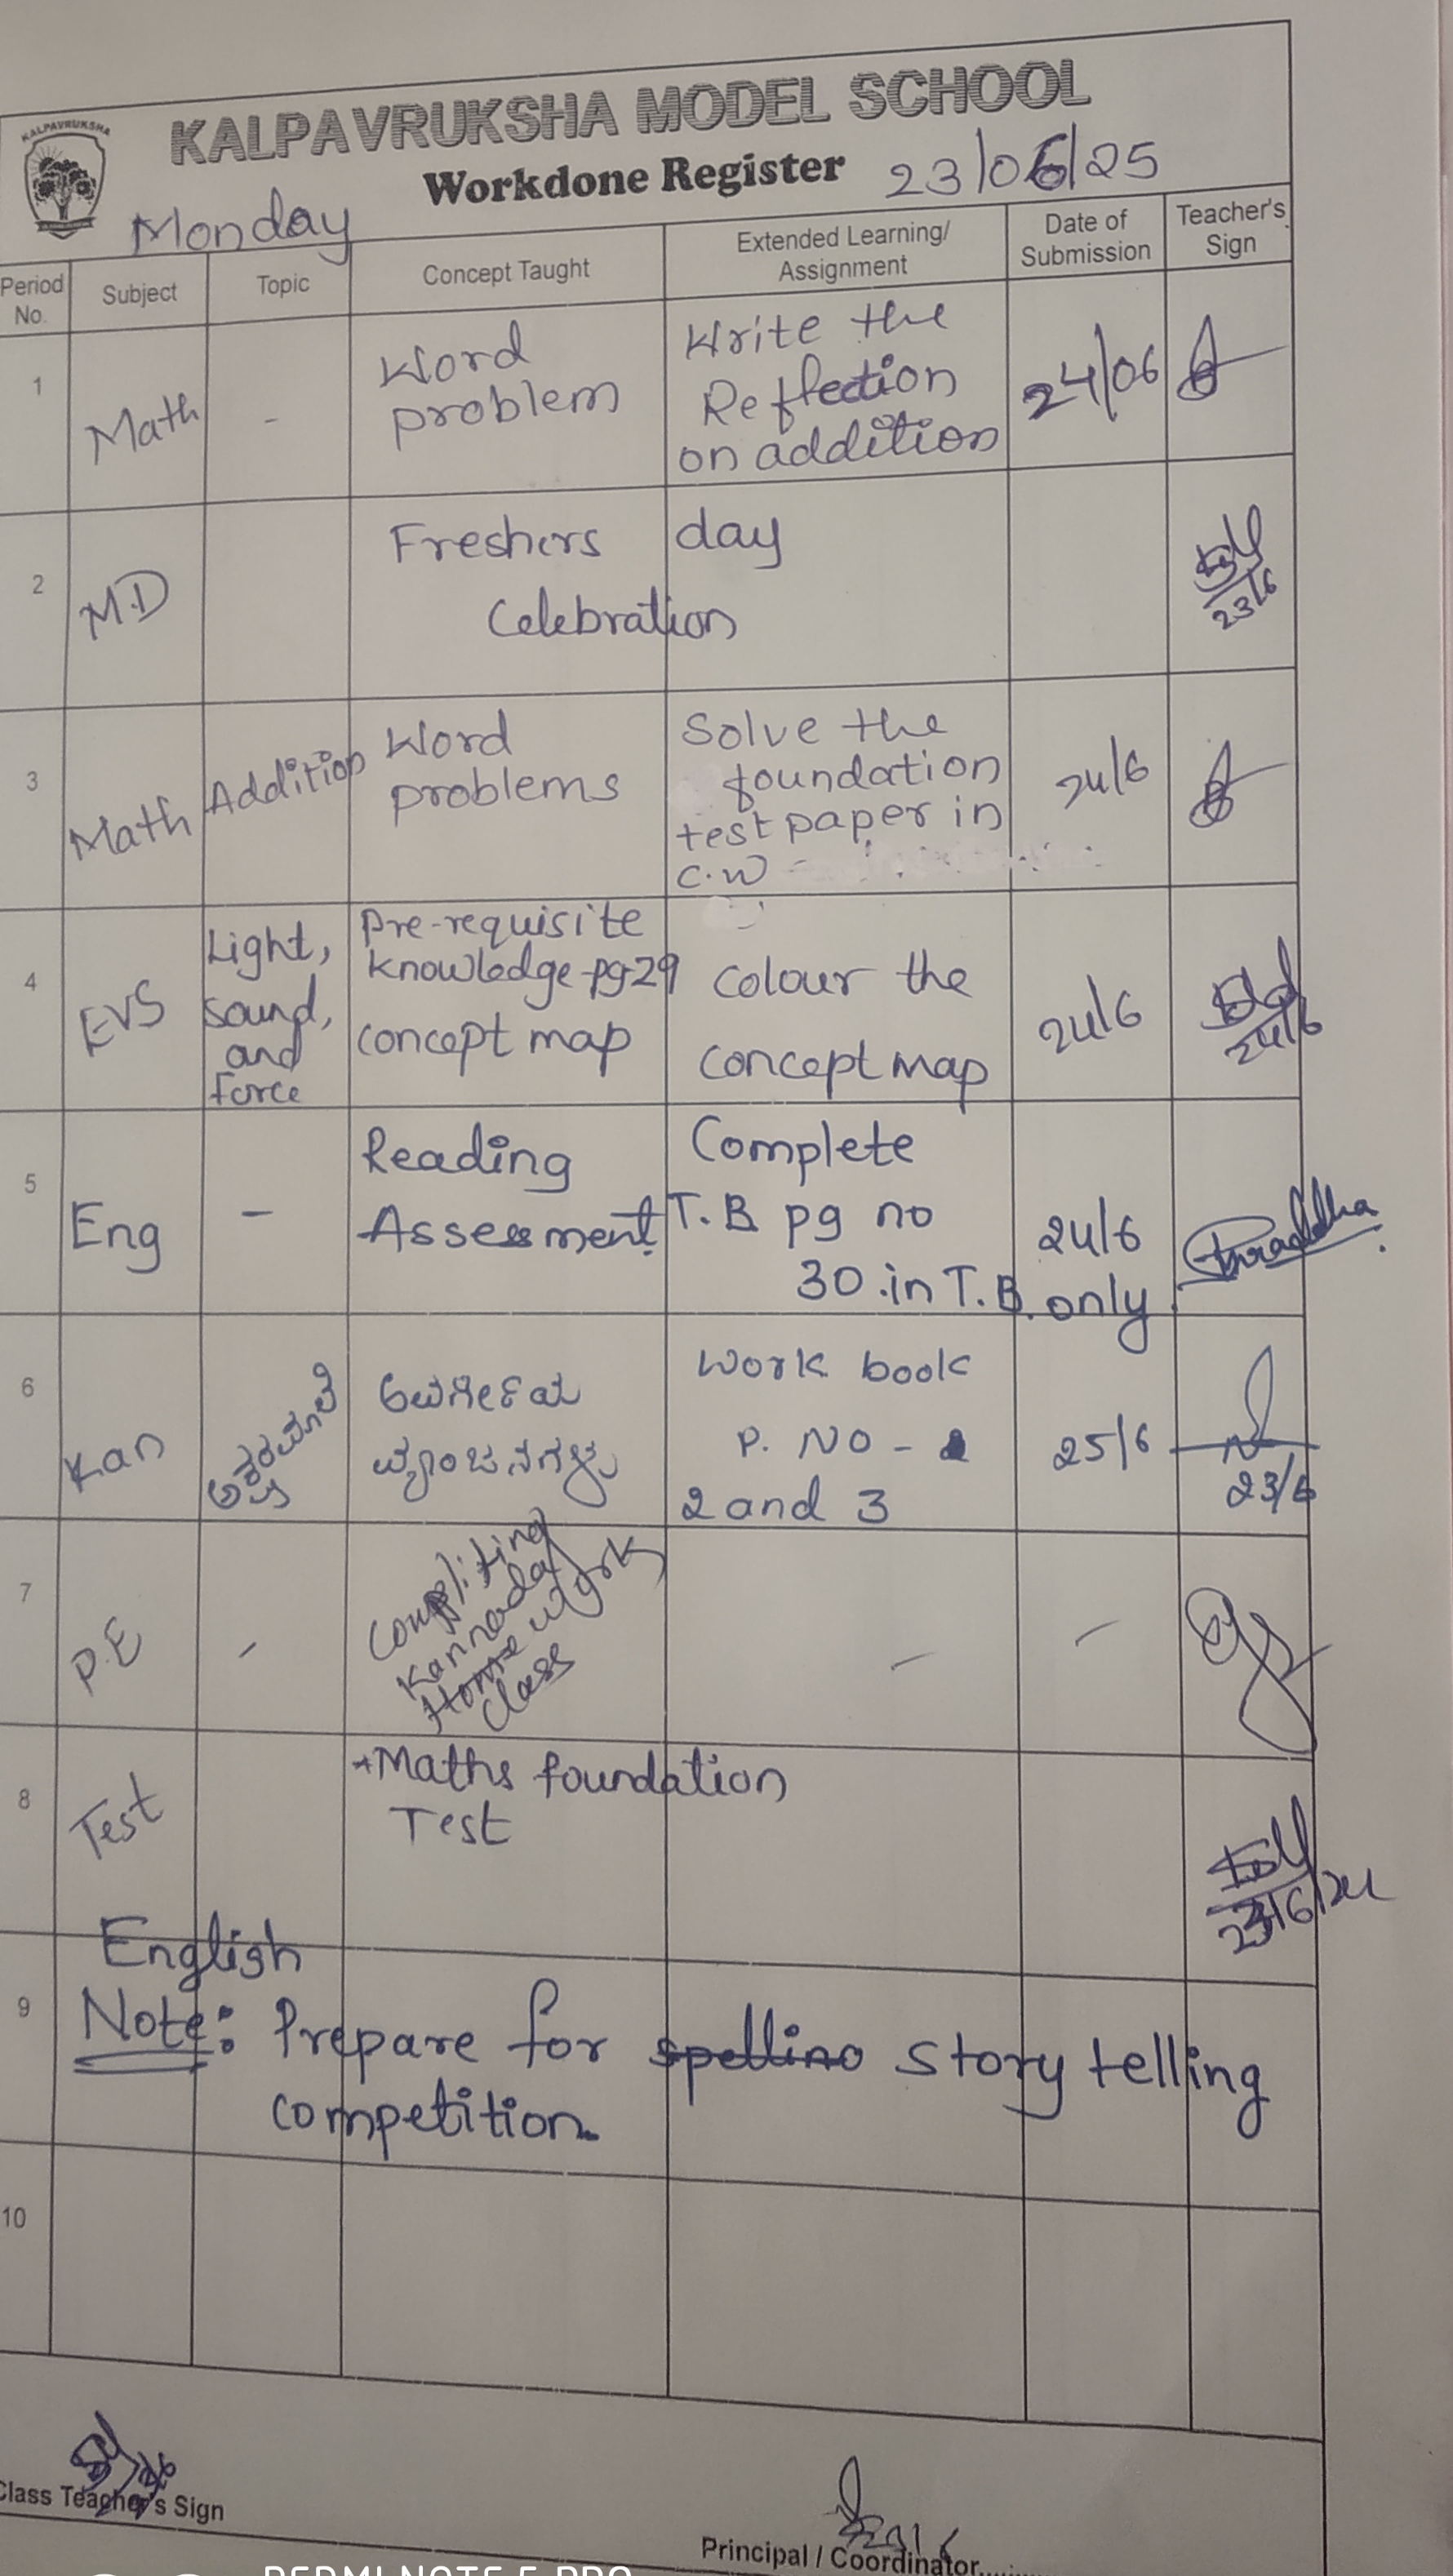 KALPAVRUKSHA
KALPAVRUKSHA MODEL SCHOOL
Workdone Register 23/06/25
Monday
Period No. Subject Topic Concept Taught Extended Learning/ Assignment Date of Submission Teacher's Sign
1 Math - Word problem Write the Reflection on addition 24/06
2 M.D Freshers day Celebration 23/6
3 Math Addition Word problems Solve the foundation test paper in C.W 24/6
4 EVS Light, sound, and force Pre-requisite knowledge-pg-29 concept map colour the concept map 24/6 24/6
5 Eng - Reading Assessment. Complete T.B pg no 30.in T.B. only. 24/6 Shraddha
6 Kan ಅಕ್ಷರಮಾಲೆ ಅವರ್ಗೀಯ ವ್ಯಂಜನಗಳು Work book P. NO - 2 and 3 25/6 23/6
7 P.E - Compliting Kannada Home work class - -
8 Test *Maths foundation Test
English
9 Note: Prepare for spelling story telling
competition.
10
Class Teacher's Sign
Principal / Coordinator......
REDMI NOTE 5 PRO